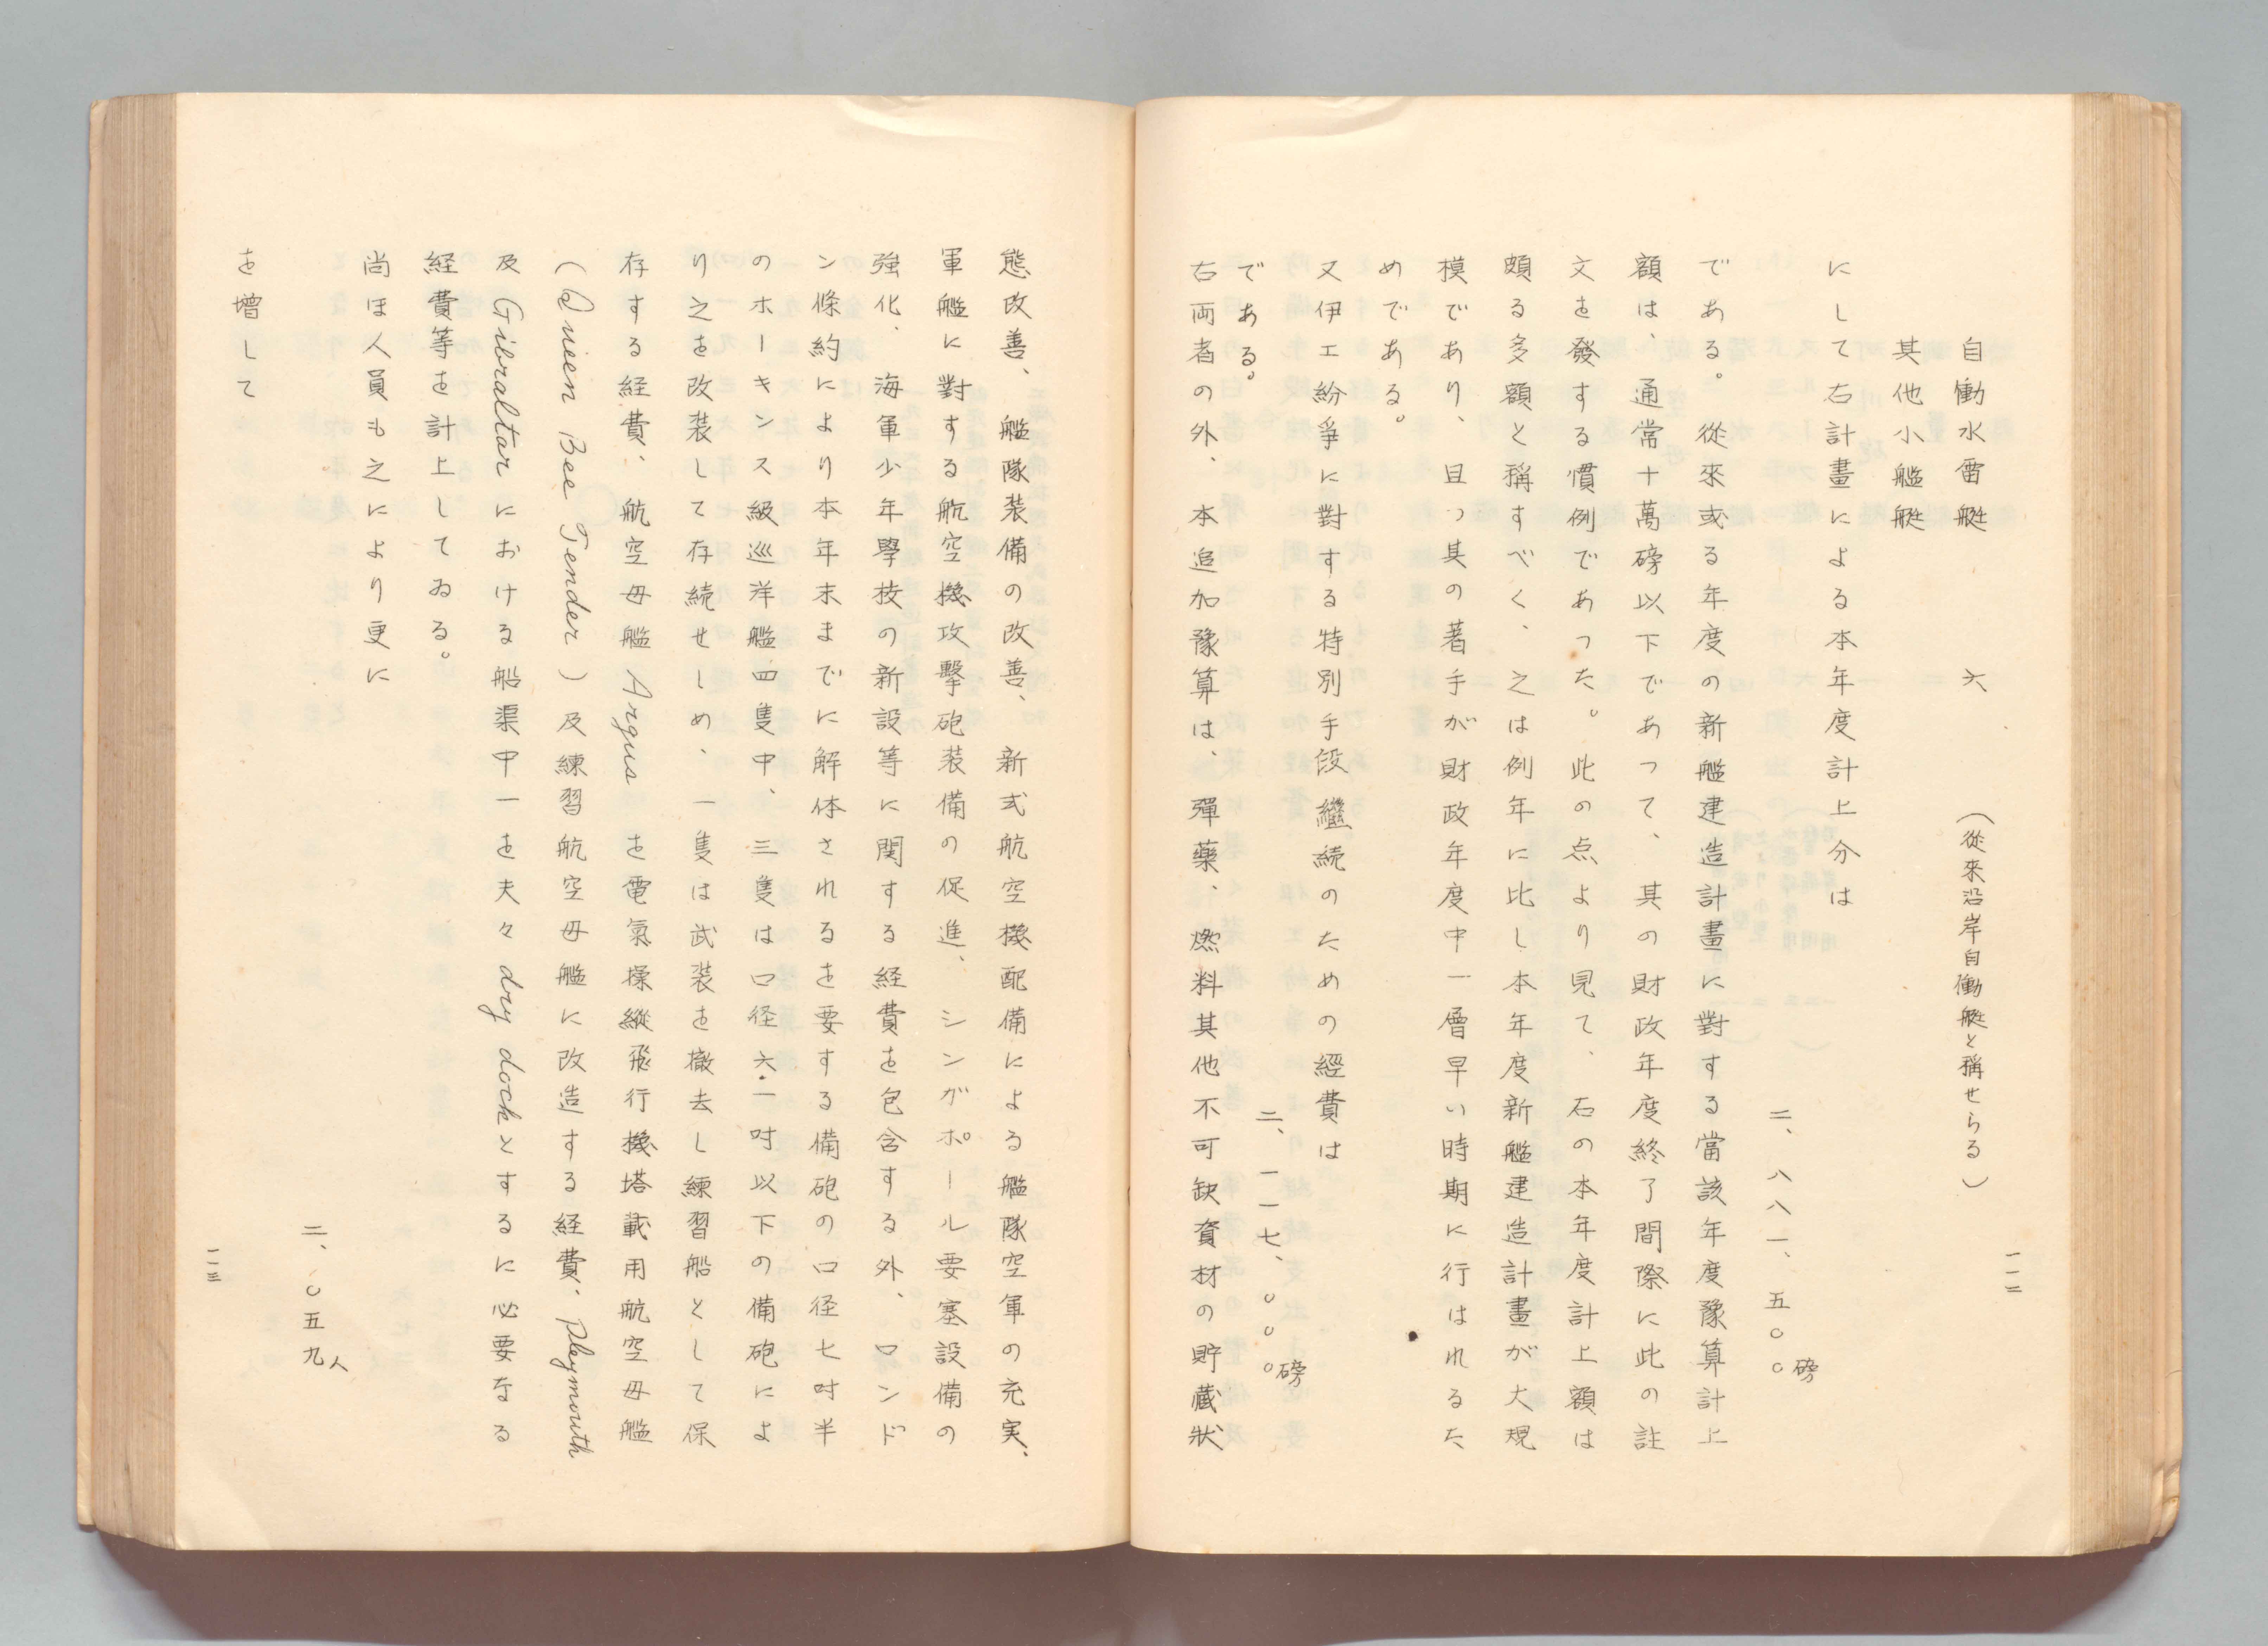 一一二
自働水雷艇　六　（從來沿岸自働艇と稱せらる）
其他小艦艇
にして右計畫による本年度計上分は
二、八八一、五〇〇磅
である。從來或る年度の新艦建造計畫に對する當該年度豫算計上
額は、通常十萬磅以下であつて、其の財政年度終了間際に此の註
文を發する慣例であつた。此の点より見て、石の本年度計上額は
頗る多額と稱すべく、之は例年に比し本年度新艦建造計畫が大規
模であり、且つ其の著手が財政年度中一層早い時期に行はれるた
めである。
又伊エ紛爭に對する特別手段繼続のための經費は
二、一一七、〇〇〇磅
である。
右両者の外、本追加豫算は、彈藥、燃料其他不可缺資材の貯藏狀
態改善、艦隊装備の改善、新式航空機配備による艦隊空軍の充実、
軍艦に對する航空機攻擊砲装備の促進、シンガポール要塞設備の
強化、海軍少年學校の新設等に関する経費を包含する外、ロンド
ン條約により本年末までに解体されるを要する備砲の口径七吋半
のホーキンス級巡洋艦四隻中、三隻は口径六・一吋以下の備砲によ
り之を改装して存続せしめ、一隻は武装を撤去し練習船として保
存する経費、航空母艦 Argus を電氣操縦飛行機塔載用航空母艦
（Queen Bee Tender）及練習航空母艦に改造する経費、Pleymouth
及 Gibraltar における船渠中一を夫々 dry dock とするに必要なる
経費等を計上してゐる。
尚ほ人員も之により更に
二、〇五九人
を增して
一一三